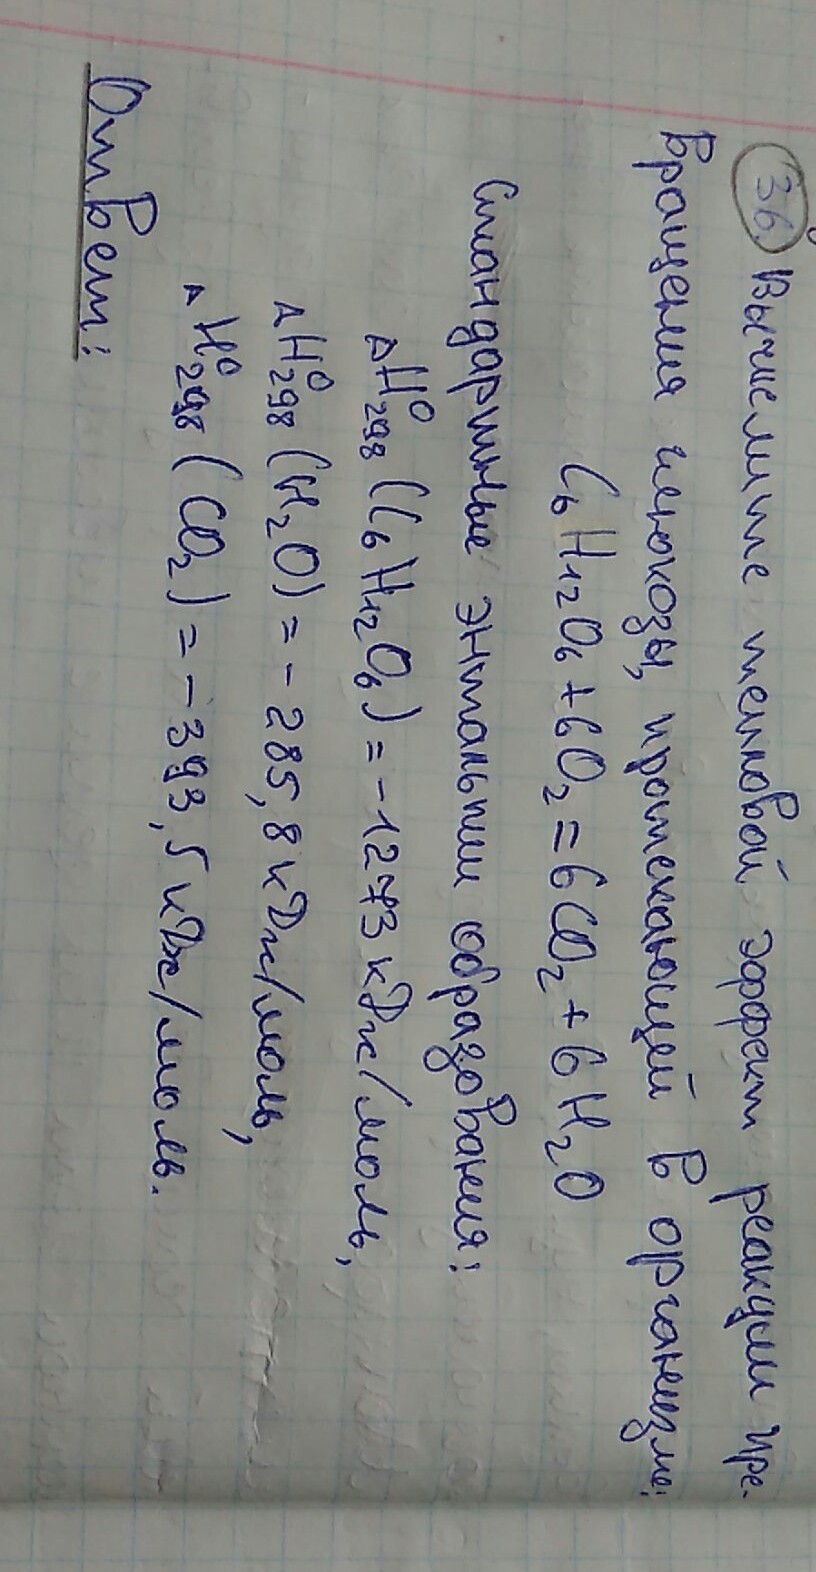 36. Вычислите тепловой эффект реакции пре-
вращения глюкозы, протекающей в организме:
C₆H₁₂O₆ + 6O₂ = 6CO₂ + 6H₂O
Стандартные энтальпии образования:
ΔH⁰₂₉₈ (C₆H₁₂O₆) = -1273 кДж/моль,
ΔH⁰₂₉₈ (H₂O) = - 285,8 кДж/моль,
ΔH⁰₂₉₈ (CO₂) = - 393,5 кДж/моль.
Ответ: